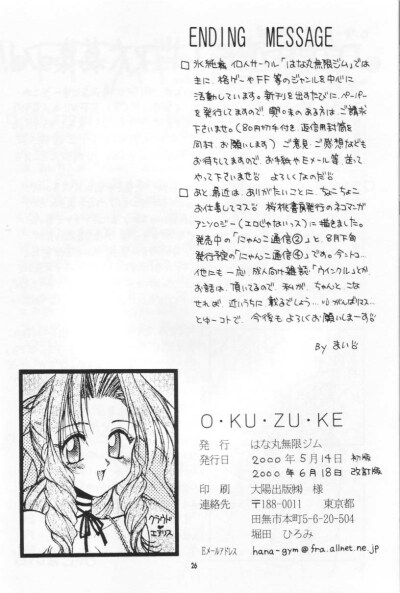 ENDING MESSAGE
□ 氷純(毒) 個人サークル「はな丸無限ジム」では
主に、格ゲーやFF等のジャンルを中心に
活動しています。新刊を出すたびに、ペーパー
を発行してますので、興味のある方は、ご請求
下さいませ。(80円切手付き、返信用封筒を
同封、お願いします) ご意見、ご感想なども
お待ちしてますので、お手紙やEメール等、送って
やって下さいませ よろしくなのだ
□ あと最近は、ありがたいことに、ちょこちょこ
お仕事してマス 桜桃書房発行のネコマンガ
アンソロジー(エロじゃないっス)に描きました。
発売中の「にゃんこ通信②」と、8月下旬
発行予定の「にゃんこ通信④」です。今ントコ…
他にも一応、成人向け雑誌「ウインクル」とか
お話は、頂いてるので、私が、ちゃんと こな
せれば、近いうちに 載るでしょう… がんばりマス…
とゆーコトで、今後も よろしくお願いしまーす
By まい
O・KU・ZU・KE
発行 はな丸無限ジム
発行日 2000年5月14日 初版
2000年6月18日 改訂版
印刷 大陽出版㈱ 様
連絡先 〒188-0011 東京都
田無市本町5-6-20-504
堀田 ひろみ
Eメールアドレス hana-gym@fra.allnet.ne.jp
クラウド
♥
エアリス
26